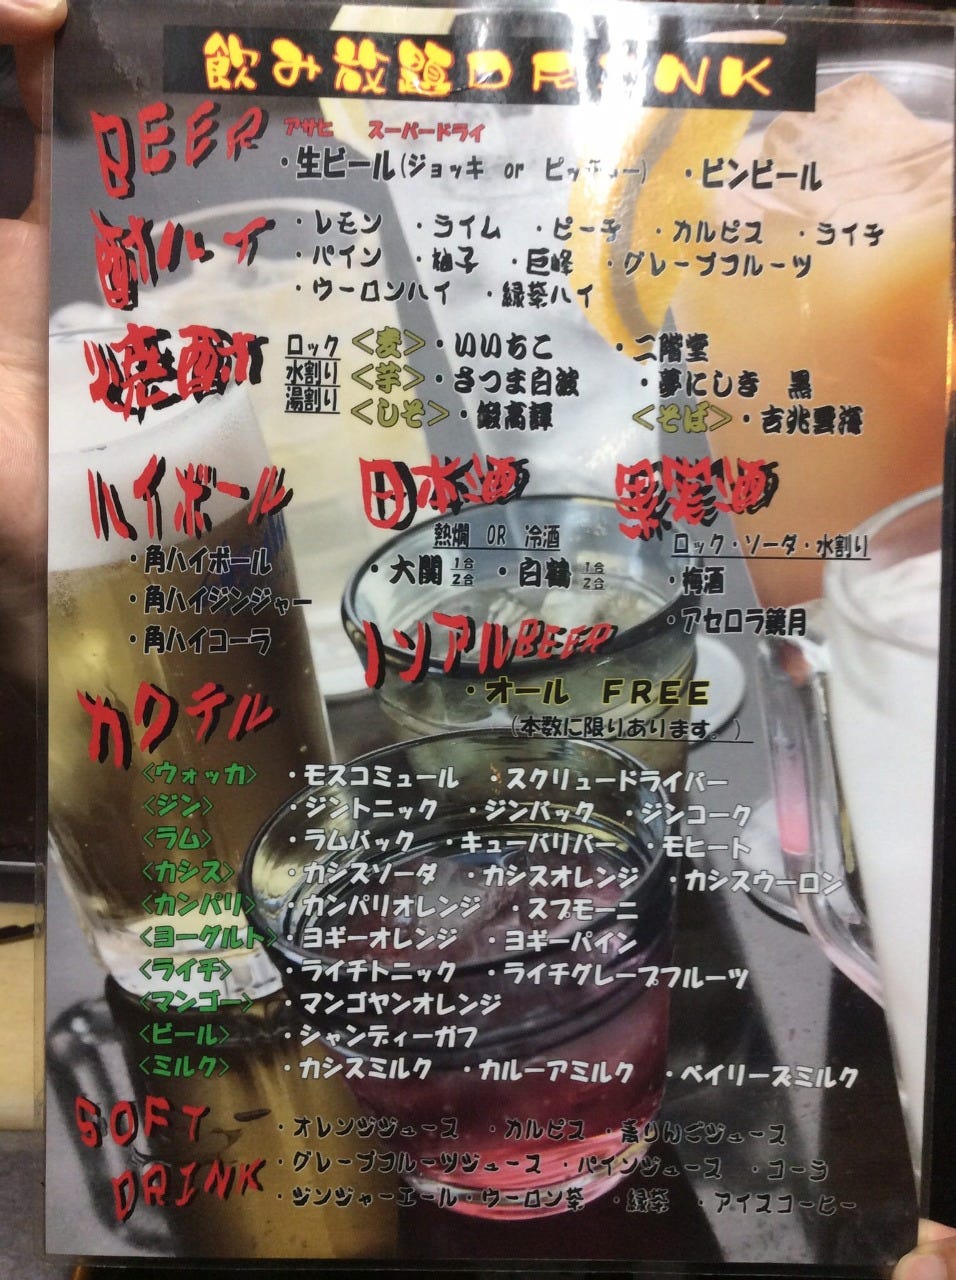 飲み放題DRINK
BEER アサヒ スーパードライ
・生ビール(ジョッキ or ピッチャー) ・ビンビール
酎ハイ ・レモン ・ライム ・ピーチ ・カルピス ・ライチ
・パイン ・柚子 ・巨峰 ・グレープフルーツ
・ウーロンハイ ・緑茶ハイ
焼酎 ロック <麦>・いいちこ ・二階堂
水割り <芋>・さつま白波 ・夢にしき 黒
湯割り <しそ>・鍛高譚 <そば>・吉兆雲海
ハイボール
・角ハイボール
・角ハイジンジャー
・角ハイコーラ
日本酒
熱燗 OR 冷酒
・大関 1合 2合 ・白鶴 1合 2合
果実酒
ロック・ソーダ・水割り
・梅酒
・アセロラ鏡月
ノンアルBEER
・オール FREE
(本数に限りあります。)
カクテル
<ウォッカ> ・モスコミュール ・スクリュードライバー
<ジン> ・ジントニック ・ジンバック ・ジンコーク
<ラム> ・ラムバック ・キューバリバー ・モヒート
<カシス> ・カシスソーダ ・カシスオレンジ ・カシスウーロン
<カンパリ> ・カンパリオレンジ ・スプモーニ
<ヨーグルト> ・ヨギーオレンジ ・ヨギーパイン
<ライチ> ・ライチトニック ・ライチグレープフルーツ
<マンゴー> ・マンゴヤンオレンジ
<ビール> ・シャンディーガフ
<ミルク> ・カシスミルク ・カルーアミルク ・ベイリーズミルク
SOFT DRINK
・オレンジジュース ・カルピス ・青りんごジュース
・グレープフルーツジュース ・パインジュース ・コーラ
・ジンジャーエール ・ウーロン茶 ・緑茶 ・アイスコーヒー